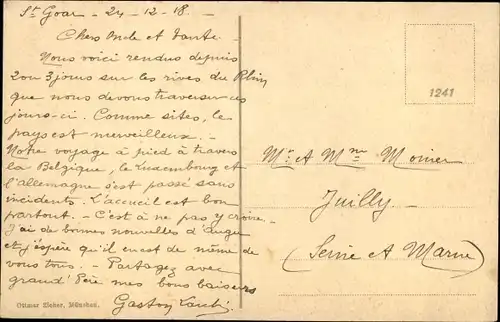 St Goar - 24-12-18.
Chers Oncle et Tante.-
Nous voici rendus depuis
2 ou 3 jours sur les rives du Rhin
que nous devons traverser ces
jours-ci. Comme sites, le
pays est merveilleux.-
Notre voyage à pied à travers
la Belgique, le Luxembourg et
l'allemagne s'est passé sans
incidents. L'accueil est bon
partout. - C'est à ne pas y croire.-
J'ai de bonnes nouvelles d'Auger
et j'espère qu'il en est de même de
vous tous. - Partagez avec
grand'Père mes bons baisers
Gaston
Ottmar Zieher, München.
1241
Mr & Mme Monier
Juilly
(Seine et Marne)